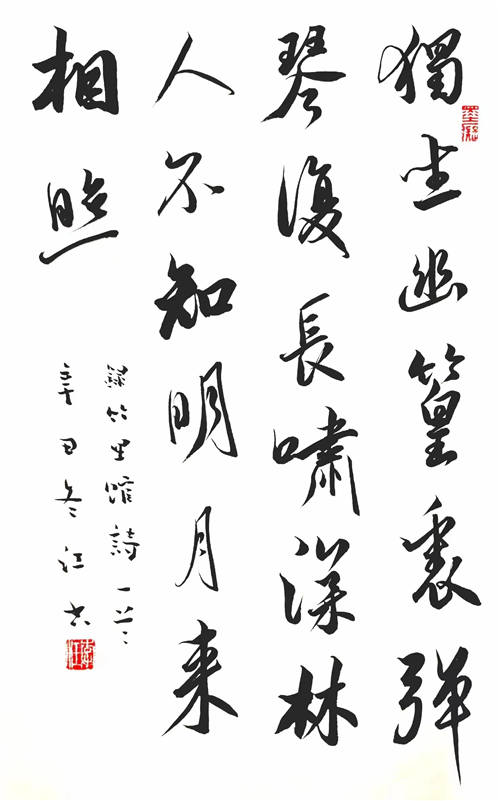 獨坐幽篁裏彈
琴復長嘯深林
人不知明月來
相照
錄竹里館詩一首
辛丑冬江書